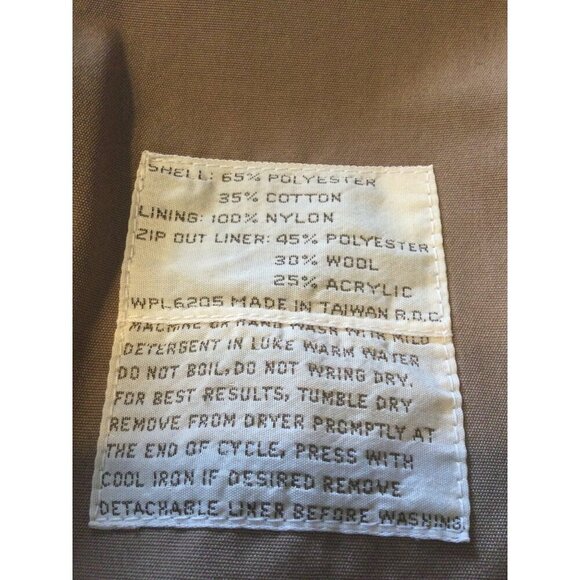 SHELL: 65% POLYESTER
35% COTTON
LINING: 100% NYLON
ZIP OUT LINER: 45% POLYESTER
30% WOOL
25% ACRYLIC
WPL6205 MADE IN TAIWAN R.O.C.
MACHINE OR HAND WASH WITH MILD
DETERGENT IN LUKE WARM WATER
DO NOT BOIL, DO NOT WRING DRY.
FOR BEST RESULTS, TUMBLE DRY
REMOVE FROM DRYER PROMPTLY AT
THE END OF CYCLE, PRESS WITH
COOL IRON IF DESIRED REMOVE
DETACHABLE LINER BEFORE WASHING